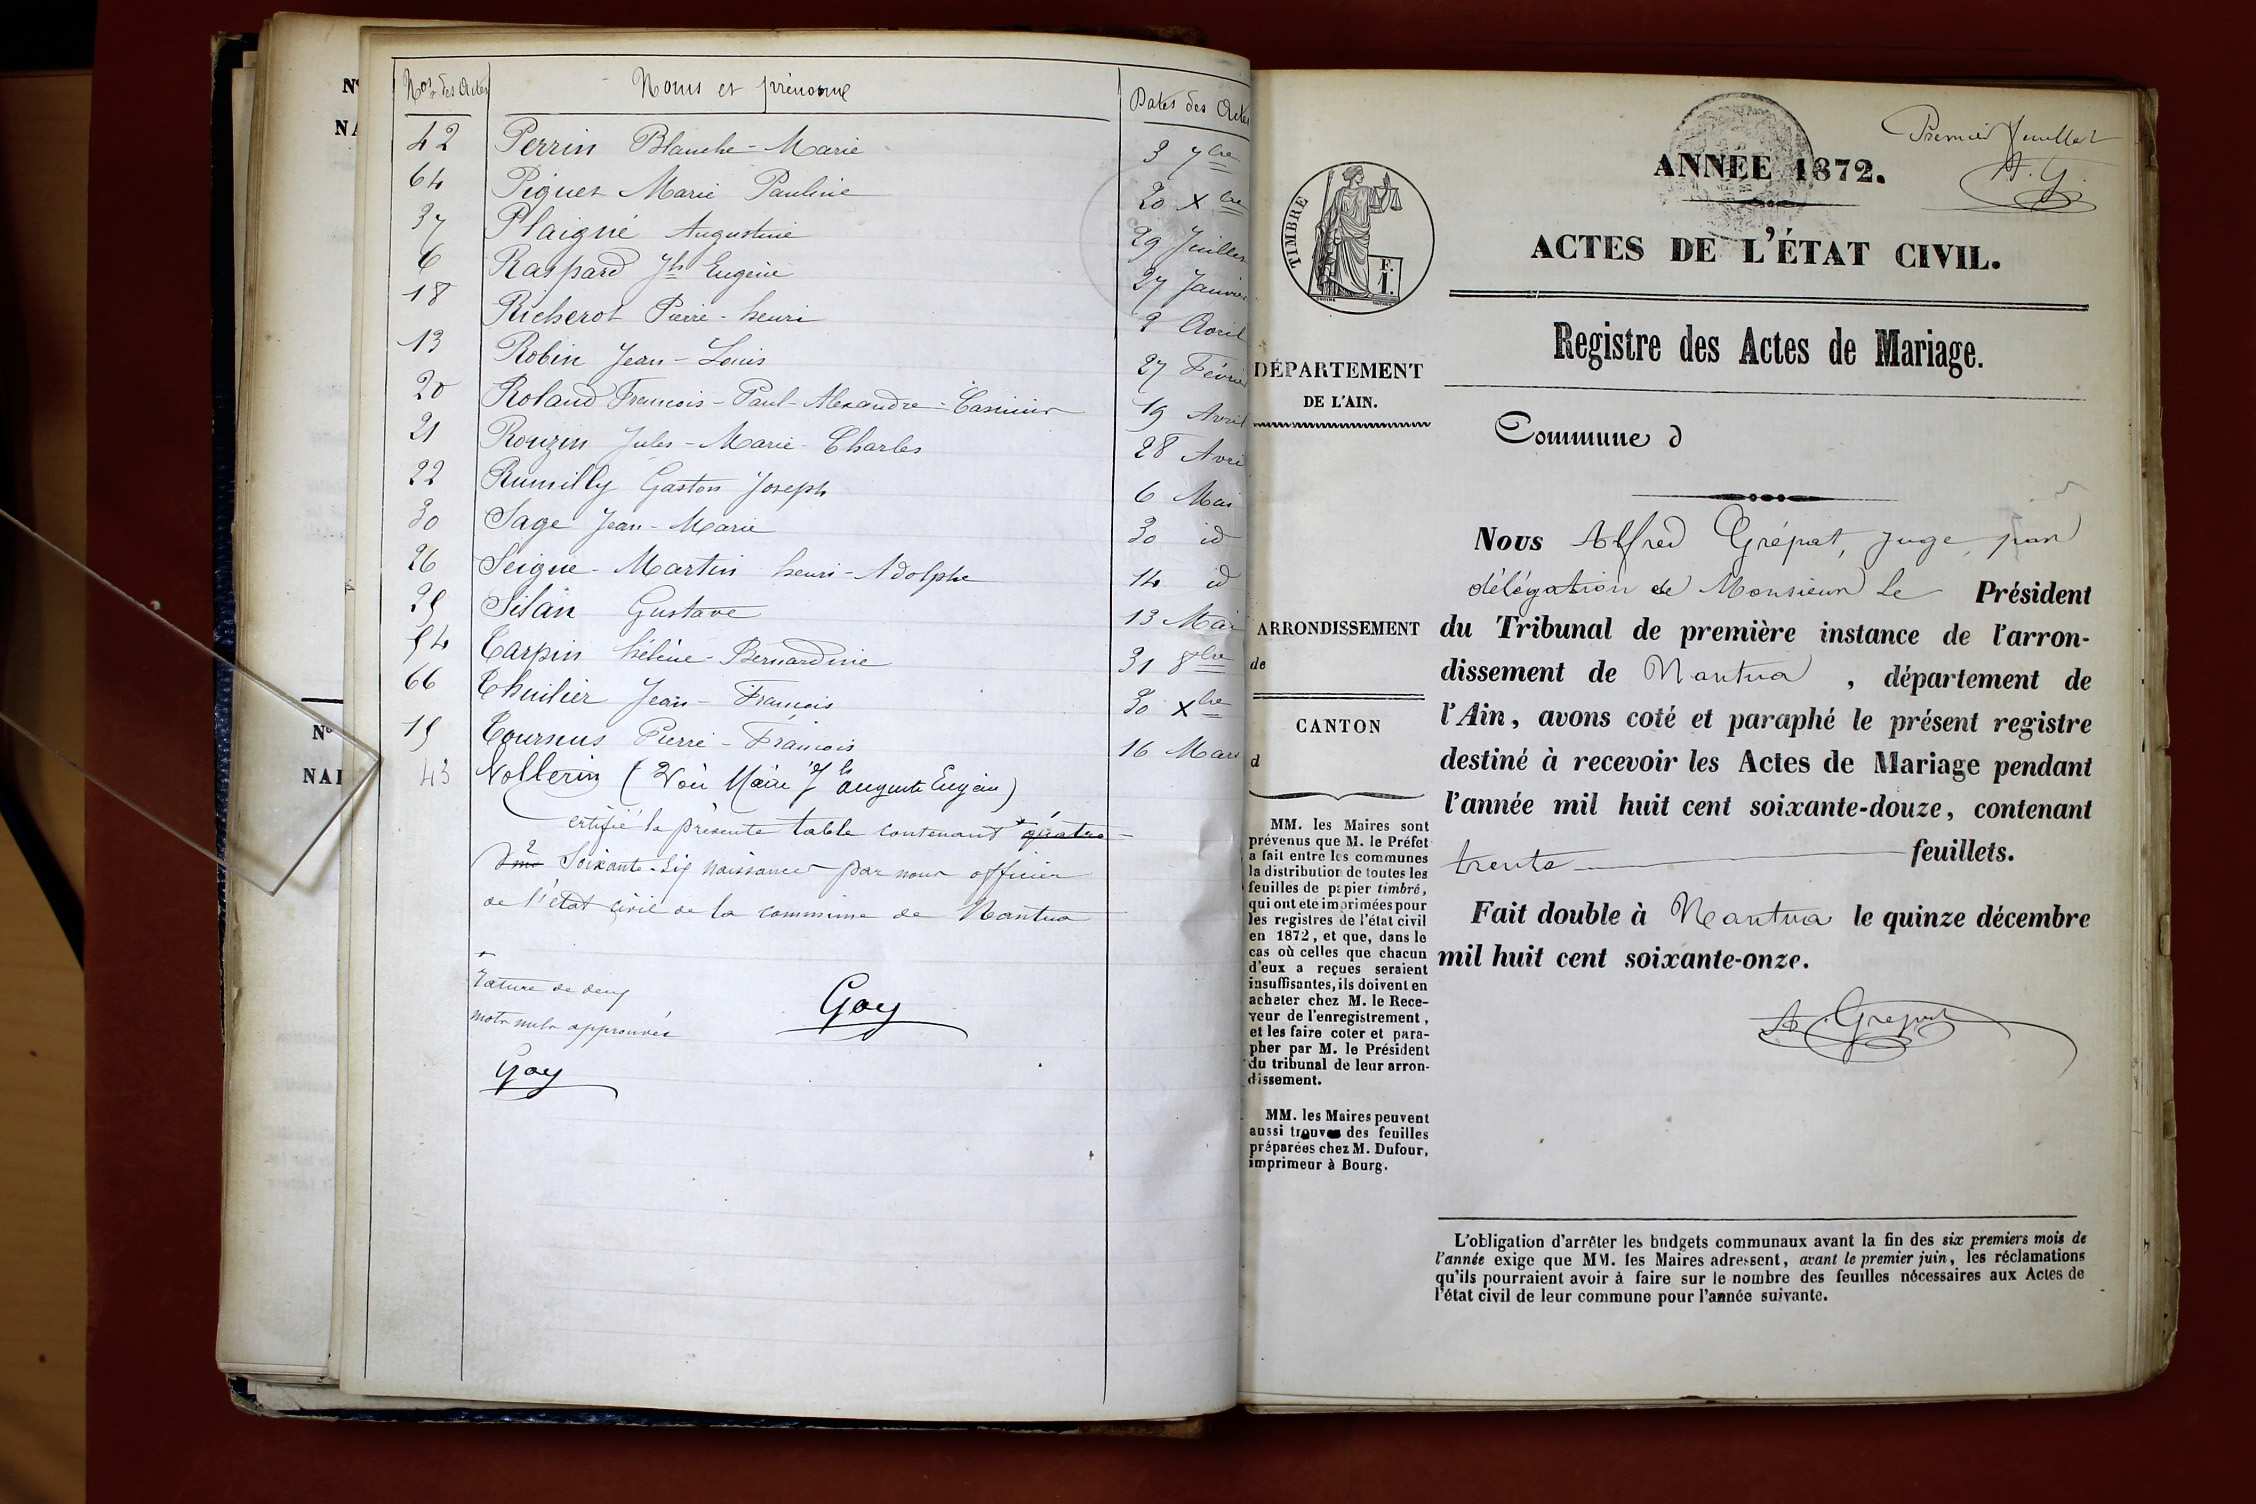 Nos des Actes Noms et prénoms Dates des Actes
42 Perrin Blanche-Marie 3 7bre
64 Piquet Marie Pauline 20 Xbre
37 Plaigne Augustine 29 Juillet
6 Raspard Jh Eugène 27 Janvier
18 Richerot Pierre-henri 9 Avril
13 Robin Jean-Louis 27 Février
20 Roland François-Paul-Alexandre-Casimir 19 Avril
21 Rouzin Jules-Marie-Charles 28 Avril
22 Rumilly Gaston Joseph 6 Mai
30 Sage Jean-Marie 30 id
26 Seigne-Martin henri-Adolphe 14 id
25 Silan Gustave 13 Mai
54 Tarpin hélène-Bernardine 31 8bre
66 Thuilier Jean-François 30 Xbre
15 Tournus Pierre-François 16 Mars
43 Vollerin (Voir Maire Auguste Eugène)
certifié la présente table contenant quatre
Soixante-Six naissances par nous officier
de l'état civil de la commune de Nantua
Rature de deux
mots nuls approuvés
Goy
Goy
N°
NA
N°
NAI
Premier feuillet
A. G.
ANNÉE 1872.
ACTES DE L'ÉTAT CIVIL.
Registre des Actes de Mariage.
TIMBRE
F.
1.
DÉPARTEMENT
DE L'AIN.
ARRONDISSEMENT
de
CANTON
d
MM. les Maires sont
prévenus que M. le Préfet
a fait entre les communes
la distribution de toutes les
feuilles de papier timbré,
qui ont été imprimées pour
les registres de l'état civil
en 1872, et que, dans le
cas où celles que chacun
d'eux a reçues seraient
insuffisantes, ils doivent en
acheter chez M. le Rece-
veur de l'enregistrement,
et les faire coter et para-
pher par M. le Président
du tribunal de leur arron-
dissement.
MM. les Maires peuvent
aussi trouver des feuilles
préparées chez M. Dufour,
imprimeur à Bourg.
Commune d
Nous Alfred Grépat, Juge, par
délégation de Monsieur Le Président
du Tribunal de première instance de l'arron-
dissement de Nantua, département de
l'Ain, avons coté et paraphé le présent registre
destiné à recevoir les Actes de Mariage pendant
l'année mil huit cent soixante-douze, contenant
trente feuillets.
Fait double à Nantua le quinze décembre
mil huit cent soixante-onze.
A. Grepat
L'obligation d'arrêter les budgets communaux avant la fin des six premiers mois de
l'année exige que MM. les Maires adressent, avant le premier juin, les réclamations
qu'ils pourraient avoir à faire sur le nombre des feuilles nécessaires aux Actes de
l'état civil de leur commune pour l'année suivante.